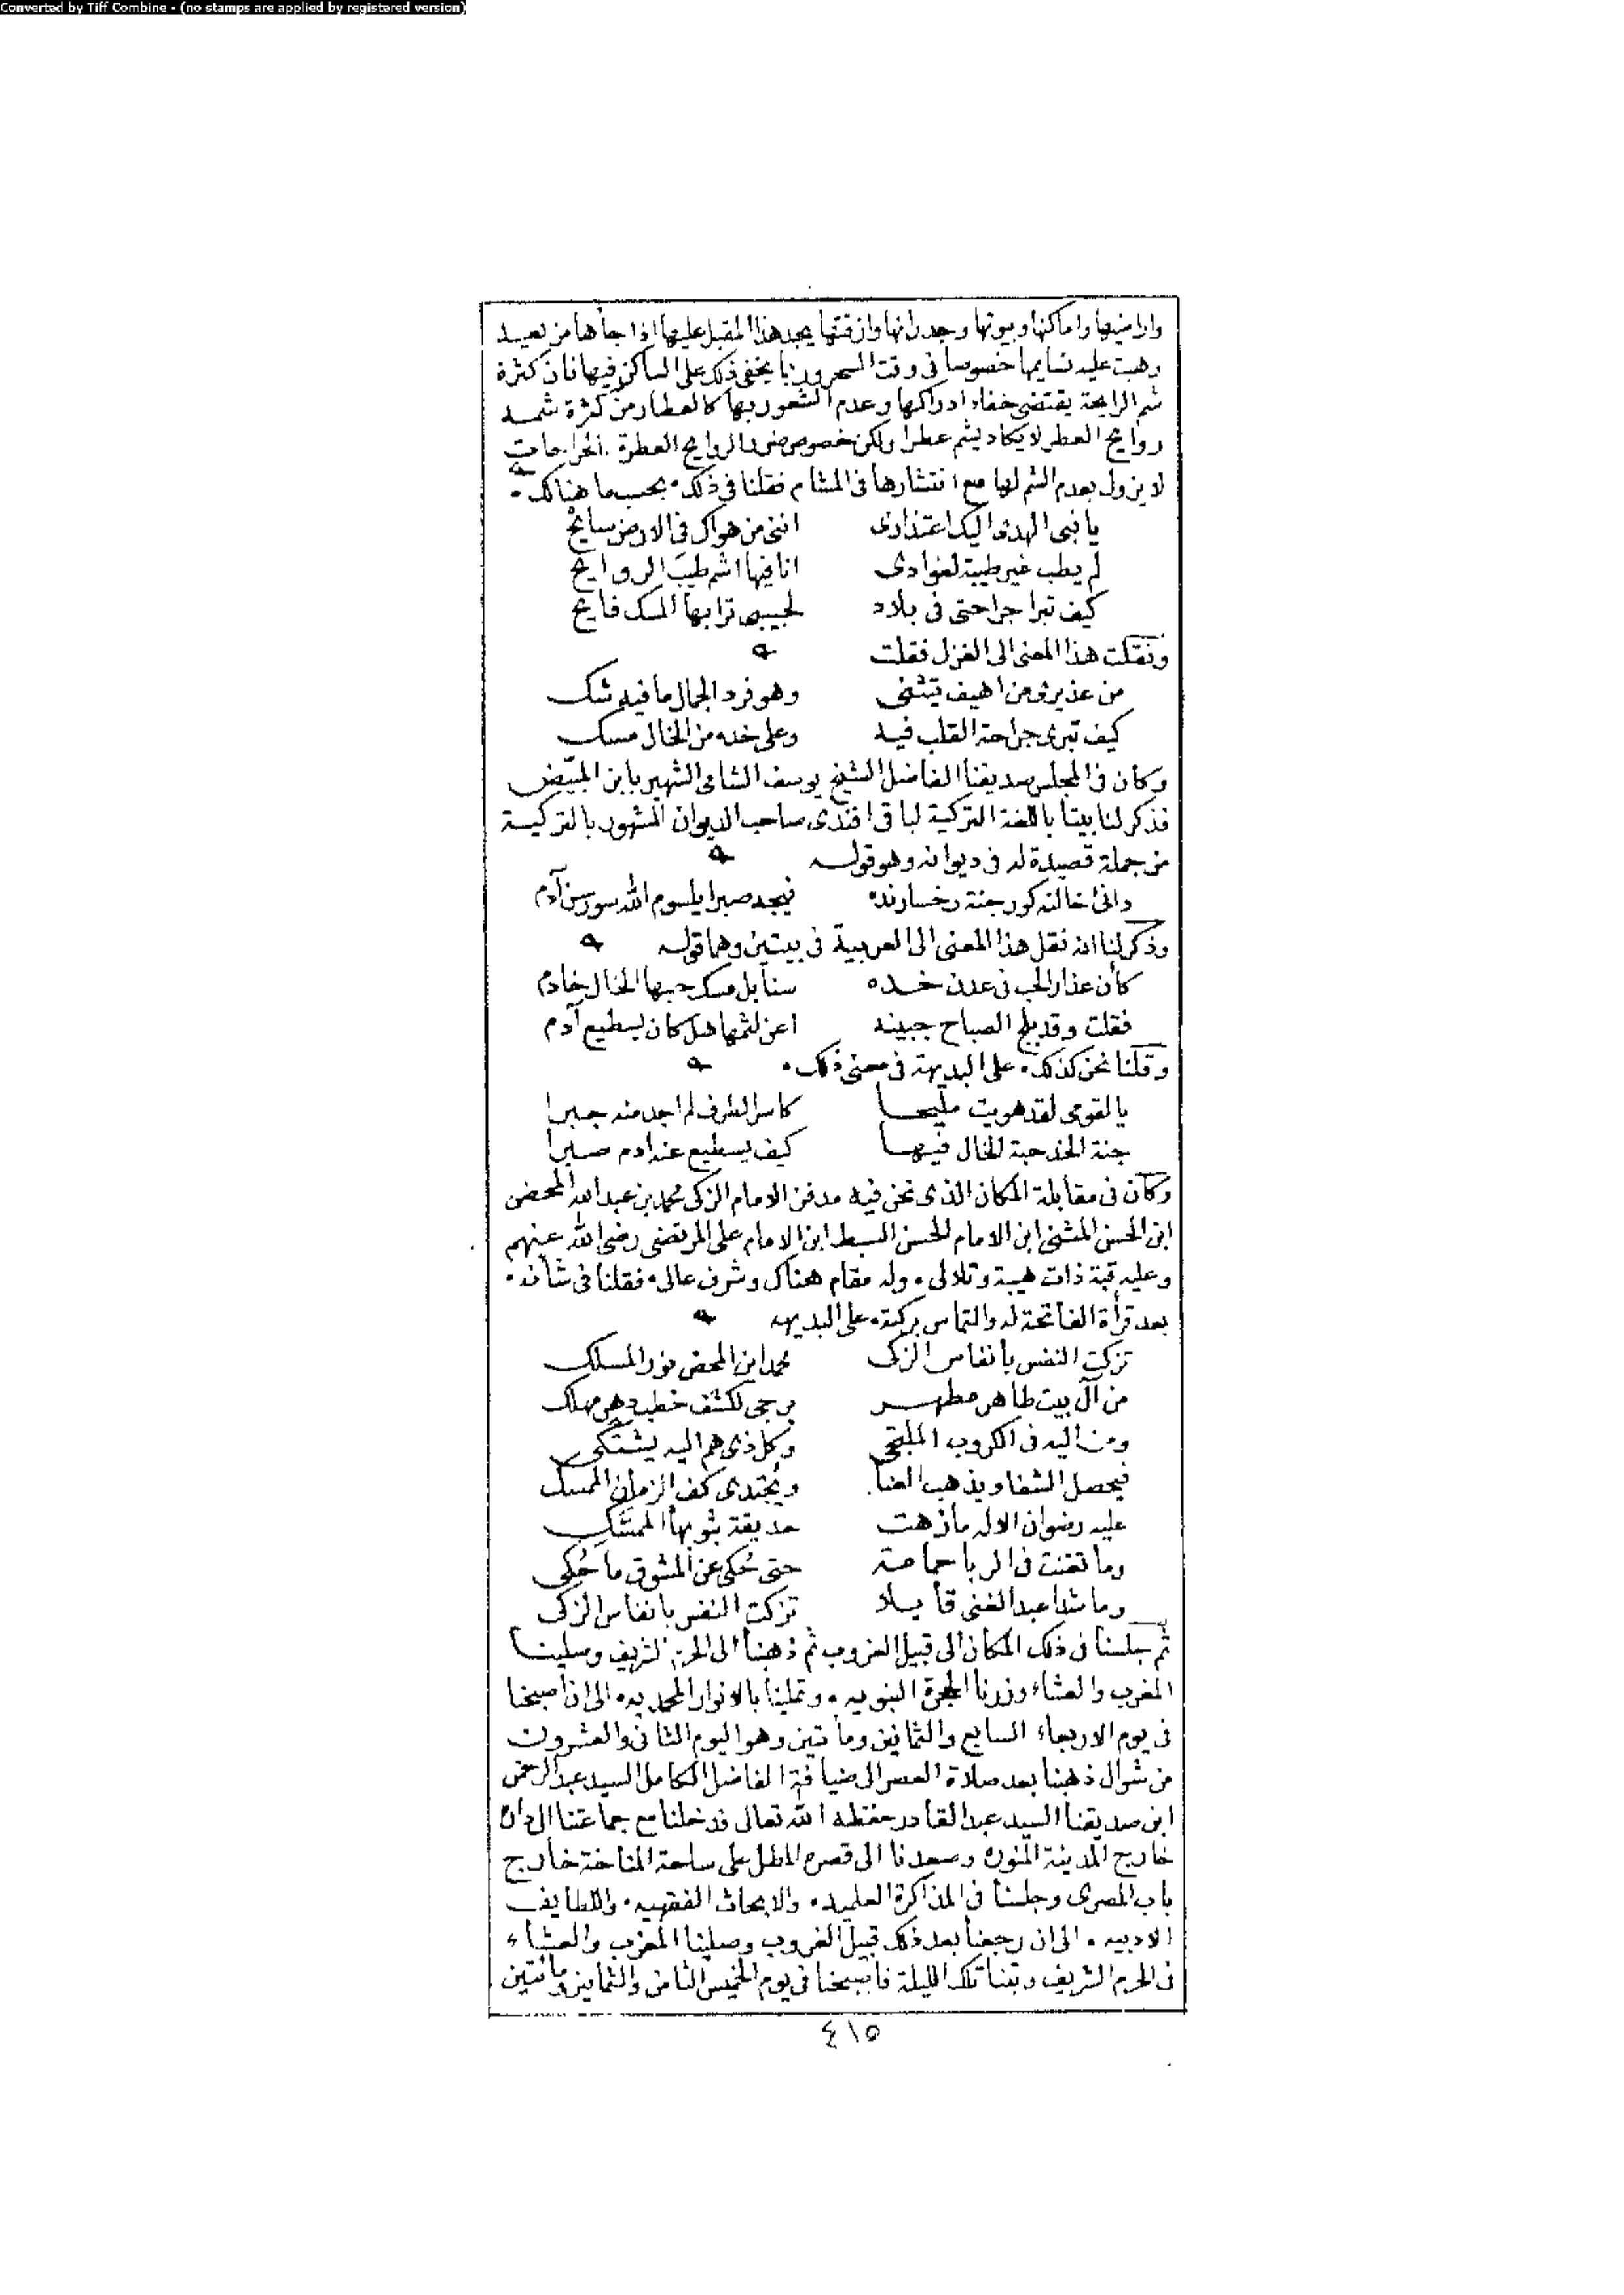 Converted by Tiff Combine - (no stamps are applied by registered version)
واراضيها واماكنها وبيوتها وجدرانها وازقتها يجد هذا المقبل عليها اذا جأها من بعيد
وهبت عليه نسايمها خصوصا فى وقت السحر وربما يخفى ذلك على الساكن فيها فان كثرة
شم الرايحة يقتضى خفاء ادراكها وعدم الشعور بها كالعطار من كثرة شمه
روايح العطر لا يكاد يشم عطرا ولكن خصوص ضرر الروايح العطرة الجراحات
لا يزول بعدم الشم لها مع انتشارها فى المشام فقلنا فى ذلك ٠ بحسب ما هنالك ٠
يا نبى الهدى اليك اعتذارى اننى من هواك فى الارض سايح
لم يطب غير طيبة لفوادى انا فيها اشم طيب الروايح
كيف تبرا جراحتى فى بلاد لحبيبى ترابها المسك فايح
ونقلت هذا المعنى الى الغزل فقلت
من عذيرى من اهيف يتثنى وهو فرد الجمال ما فيه شك
كيف تبرى جراحة القلب فيه وعلى خده من الخال مسك
وكان فى المجلس صديقنا الفاضل الشيخ يوسف الشامى الشهير بابن المبيّض
فذكر لنا بيتا باللغة التركية لباقى افندى صاحب الديوان المشهور بالتركية
من جملة قصيدة له فى ديوانه وهو قوله
دانۀ خالنه كور جنة رخسارنده نيجه صبر ايلسوم الله سورسن آدم
وذكر لنا انه نقل هذا المعنى الى العربية فى بيتين وهما قوله
كأن عذار الحب فى عدن خده سنابل مسك حبها الخال خادم
فقلت وقد بلج الصباح جبينه اعن لثمها هل كان يسطيع آدم
وقلنا نحن كذلك ٠ على البديهة فى معنى ذلك ٠
يا لقومى لقد هويت مليحا كاسر الطرف لم اجد منه جبرا
جنة الخد حبة الخال فيها كيف يسطيع عنه ادم صبرا
وكان فى مقابلة المكان الذى نحن فيه مدفن الامام الزكى محمد بن عبد الله المحض
ابن الحسن المثنى ابن الامام الحسن السبط ابن الامام على المرتضى رضى الله عنهم
وعليه قبة ذات هيبة وتلالى ٠ وله مقام هناك وشرف عالى ٠ فقلنا فى شأنه ٠
بعد قرأة الفاتحة له والتماس بركته ٠ على البديهه
تزكت النفس بأنفاس الزكى محمد ابن المحض نور المسلك
من آل بيت طاهر مطهر يرجى لكشف خطب دهر مهلك
ومن اليه فى الكروب الملتجى وكل ذى هم اليه يشتكى
فيحصل الشفا ويذهب العنا ويجتدى كف الزمان الممسك
عليه رضوان الاله ما زهت حديقة بثوبها الممسّك
وما تغنت فى الربا حمامة حتى حُكى عن المشوق ما حُكى
وما شدا عبد الغنى قأيلا تزكت النفس بانفاس الزكى
ثم جلسنا فى ذلك المكان الى قبيل الغروب ثم ذهبنا الى الحرم الشريف وصلينا
المغرب والعشاء وزرنا الحجرة النبويه ٠ وتملينا بالانوار المحمديه ٠ الى ان اصبحنا
فى يوم الاربعاء السابع والثمانين ومأتين وهو اليوم الثانى والعشرون
من شوال ذهبنا بعد صلاة العصر الى ضيافة الفاضل الكامل السيد عبد الرحمن
ابن صديقنا السيد عبد القادر حفظه الله تعالى فدخلنا مع جماعتنا الى داره
خارج المدينة المنوره وصعدنا الى قصره المطل على ساحة المناخة خارج
باب المصرى وجلسنا فى المذاكرة العلميه ٠ والابحاث الفقهيه ٠ واللطايف
الادبيه ٠ الى ان رجعنا بعد ذلك قبيل الغروب وصلينا المغرب والعشاء
فى الحرم الشريف وبتنا تلك الليلة فاصبحنا فى يوم الخميس الثامن والثمانين ومأتتين
٤١٥